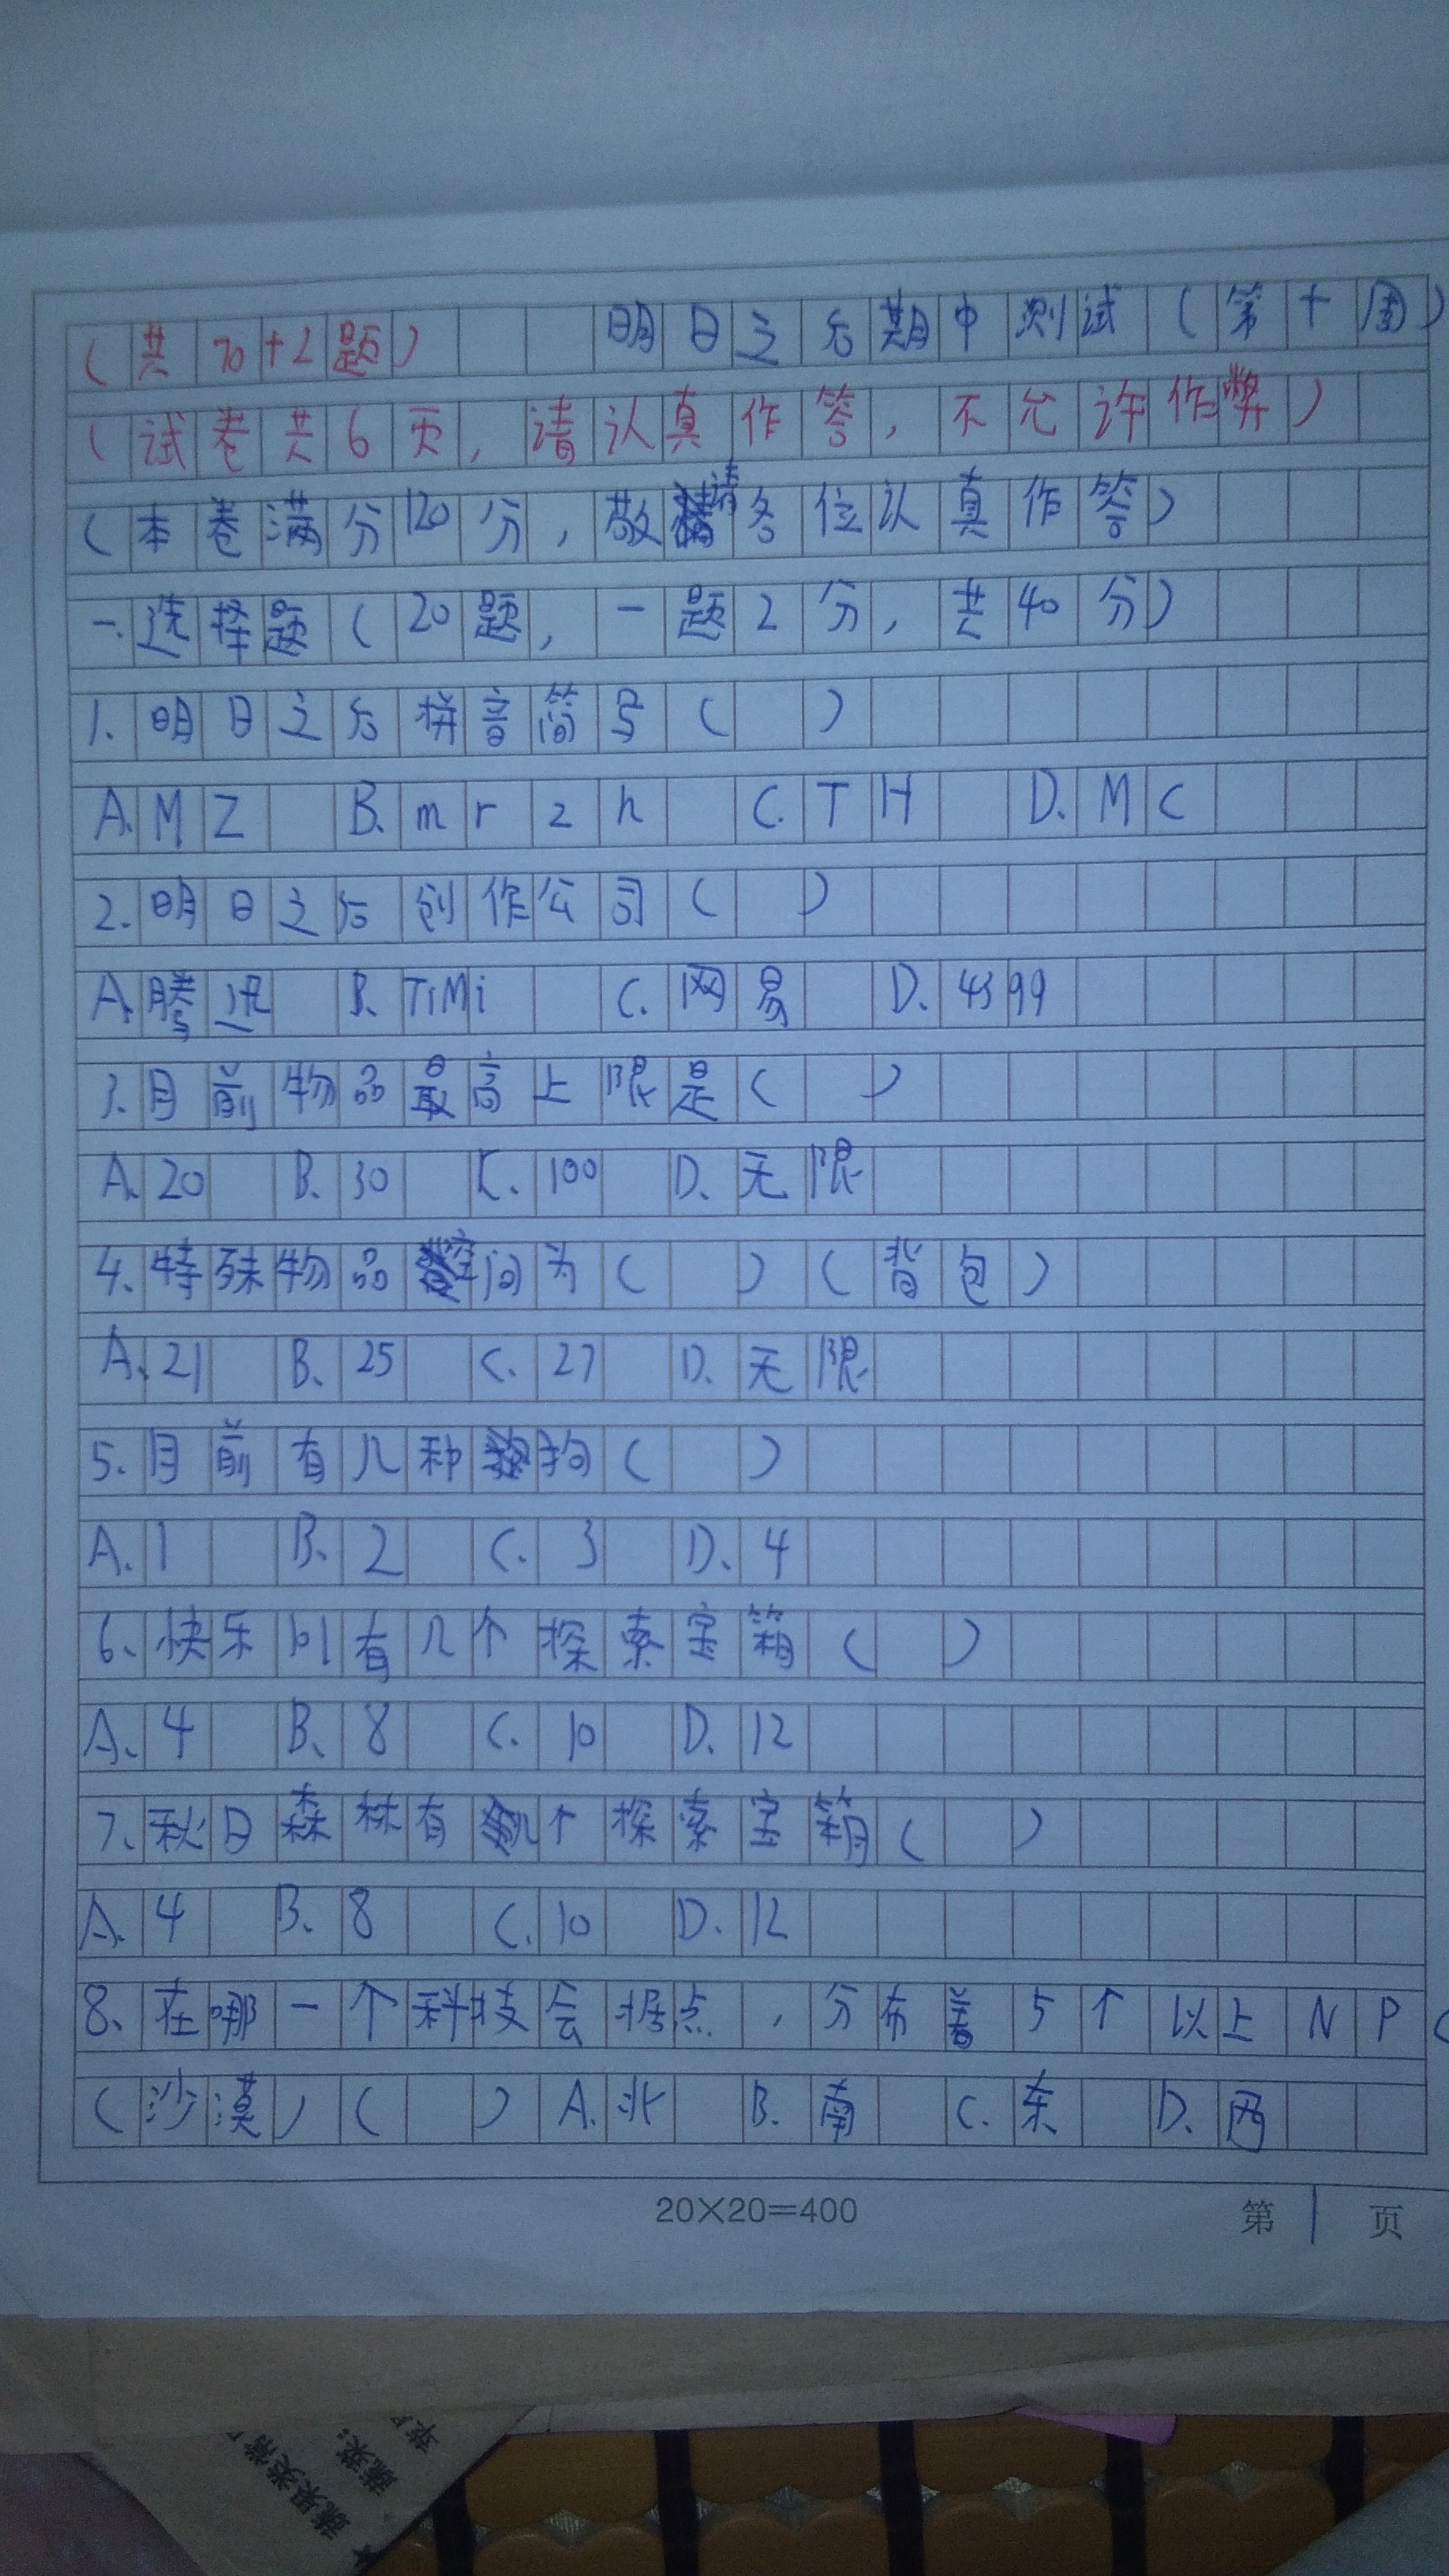 (共70+2题) 明日之后期中测试(第十周)
(试卷共6页,请认真作答,不允许作弊)
(本卷满分120分,敬请各位认真作答)
一.选择题(20题,一题2分,共40分)
1.明日之后拼音简写( )
A.MZ B.mrzh C.TH D.MC
2.明日之后创作公司( )
A.腾讯 B.TiMi C.网易 D.4399
3.目前物品最高上限是( )
A.20 B.30 C.100 D.无限
4.特殊物品空间为( )(背包)
A.21 B.25 C.27 D.无限
5.目前有几种狗( )
A.1 B.2 C.3 D.4
6.快乐101有几个探索宝箱( )
A.4 B.8 C.10 D.12
7.秋日森林有几个探索宝箱( )
A.4 B.8 C.10 D.12
8.在哪一个科技会据点,分布着5个以上NPC
(沙漠)( ) A.北 B.南 C.东 D.西
20×20=400 第1页
蔬果类常
蔬菜: